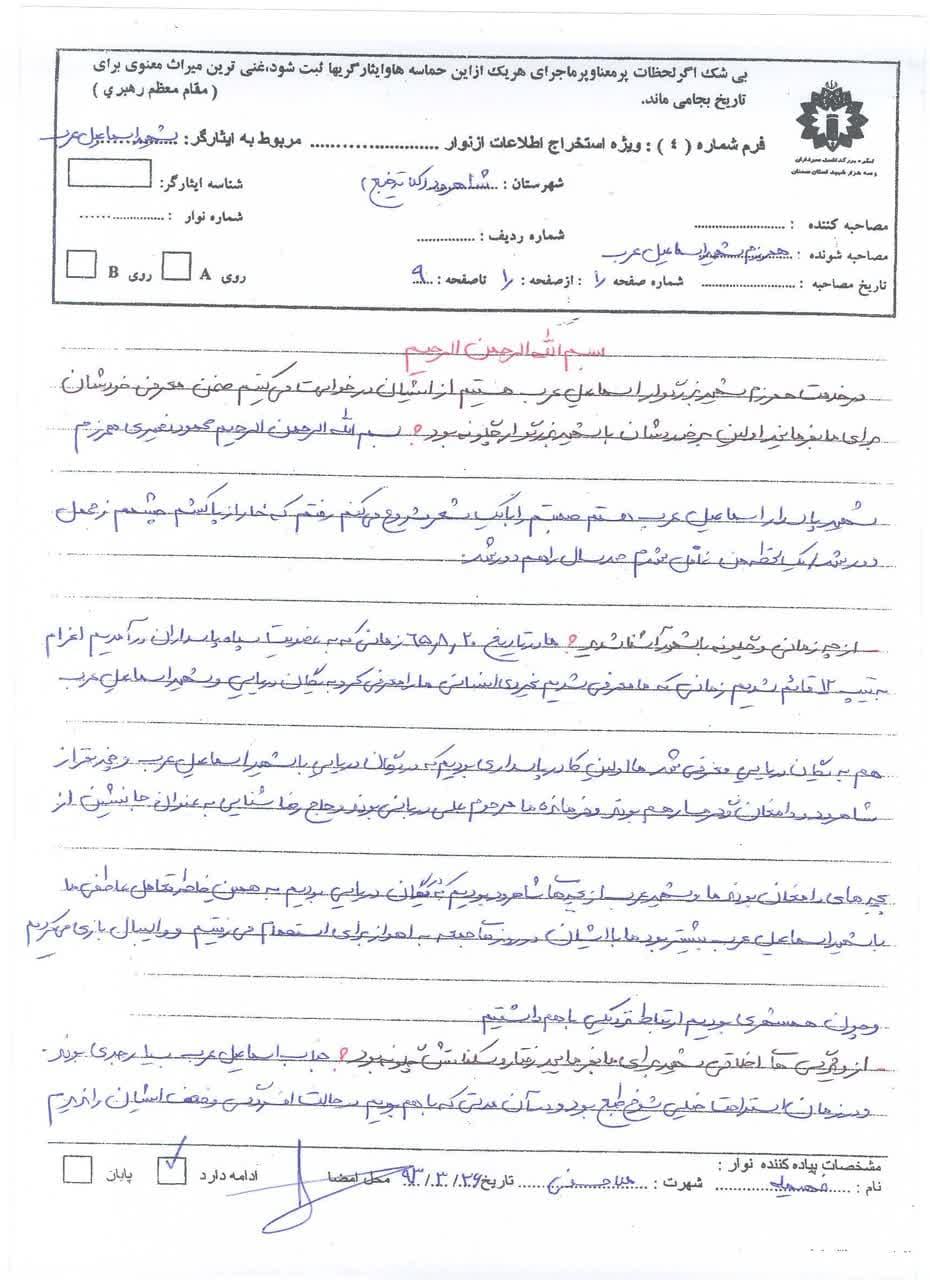 بی شک اگر لحظات پرمعناوپرماجرای هریک ازاین حماسه هاوایثارگریها ثبت شود،غنی ترین میراث معنوی برای
تاریخ بجامی ماند.
( مقام معظم رهبری )
کنگره بزرگداشت سرداران
و سه هزار شهید استان سمنان
فرم شماره ( ٤ ) : ویژه استخراج اطلاعات ازنوار ........................ مربوط به ایثارگر: شهید اسماعیل عرب
شهرستان : شاهرود
شناسه ایثارگر:
مصاحبه کننده : ........................
شماره ردیف : ..............
شماره نوار : ....................
مصاحبه شونده : همرزم شهید اسماعیل عرب
تاریخ مصاحبه : ........................ شماره صفحه : ۱ ازصفحه : ۱ تاصفحه : ۹
روی A روی B
بسم الله الرحمن الرحیم
در خدمت همرزم شهید بزرگوار اسماعیل عرب هستیم از ایشان درخواست می کنیم ضمن معرفی خودشان
برای ما بفرمایید اولین برخوردشان با شهید بزرگوار چگونه بود؟ بسم الله الرحمن الرحیم محمود همرزم
شهید پاسدار اسماعیل عرب هستم صحبتم را با یک شعر شروع می کنم رفتم که خار از پا کشم چشمم ز محمل
دور شد / یک لحظه من غافل شدم صد سال راهم دور شد.
- از چه زمانی و چگونه با شهید آشنا شدید؟ ما در تاریخ ۶۵,۸,۲۰ زمانی که به عضویت سپاه پاسداران درآمدیم اعزام
به تیپ ۱۲ قائم شدیم زمانی که ما معرفی شدیم نیروی انسانی ما را معرفی کرد به یگان دریایی و شهید اسماعیل عرب
هم به یگان دریایی معرفی شد ما اولین کادر پاسداری بودیم که در یگان دریایی با شهید اسماعیل عرب و چند نفر از
شاهرود و دامغان و گرمسار هم بودند و فرمانده ما مرحوم علی بودند و حاج رضا شنایی به عنوان جانشین از
بچه های دامغان بودند ما و شهید عرب از بچه های شاهرود بودیم که در یگان دریایی بودیم به همین خاطر تعامل عاطفی ما
با شهید اسماعیل عرب بیشتر بود ما با ایشان در روزهای جمعه به اهواز برای استحمام می رفتیم و والیبال بازی می کردیم
و چون همشهری بودیم ارتباط نزدیکی با هم داشتیم
- از ویژگی های اخلاقی شهید برای ما بفرمایید رفتار و سکناتش چگونه بود؟ جناب اسماعیل عرب بسیار جدی بودند.
در زمان استراحت خیلی شوخ طبع بود و در آن مدتی که با هم بودیم در حالت افسردگی و ضعف ایشان را ندیدیم
مشخصات پیاده کننده نوار :
نام : شهرت : تاریخ ۹۳/۳/۲۶ محل امضا ادامه دارد پایان